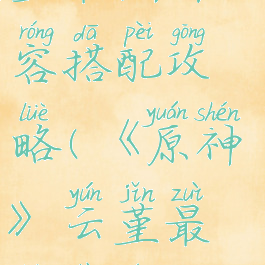 róng dā pèi gōng
容搭配攻
lüè yuán shén
略(《原神
yún jǐn zuì
》云堇最